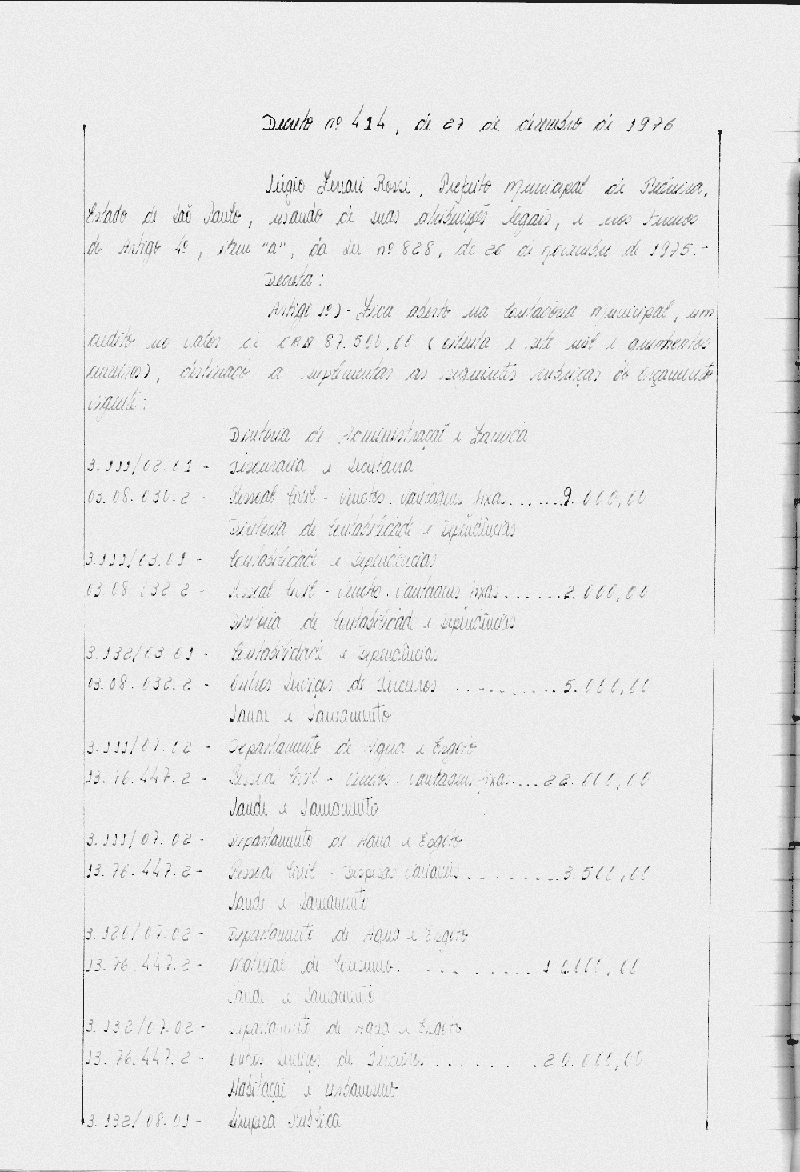 Decreto nº 414, de 27 de dezembro de 1976
Sérgio Rossi, Prefeito Municipal de
Estado de São Paulo, usando de suas atribuições legais, e nos termos
do Artigo 4º, item "a", da Lei nº 828, de 20 de novembro de 1975.-
Decreta:
Artigo 1º)- Fica aberto na Contadoria Municipal, um
credito no valor de CR$ 87.500,00 (oitenta e sete mil e quinhentos
cruzeiros), destinado a suplementar as seguintes verbas do orçamento
vigente:
Diretoria de Administração e
3.111/02.01 - Tesouraria e
03.08.030.2 - Pessoal Civil - Vencts. vantagens fixas......9.000,00
Diretoria de Contabilidade e Dependências
3.111/03.01 - Contabilidade e Dependências
03.08.032.2 - Pessoal Civil - Vencto. vantagens fixas......2.000,00
Diretoria de Contabilidade e Dependências
3.132/03.01 - Contabilidade e Dependências
03.08.032.2 - Outros Serviços de Terceiros ..........5.000,00
Saude e Saneamento
3.111/07.02 - Departamento de Agua e Esgoto
13.76.447.2 - Pessoal Civil - Vencts. vantagens fixas...22.000,00
Saude e Saneamento
3.111/07.02 - Departamento de Agua e Esgoto
13.76.447.2 - Pessoal Civil - Despesas Variaveis.........3.500,00
Saude e Saneamento
3.120/07.02 - Departamento de Agua e Esgoto
13.76.447.2 - Material de Consumo. .........000,00
Saude e Saneamento
3.132/07.02 - Departamento de Agua e Esgoto
13.76.447.2 - Outros Serviços de Terceiros .........20.000,00
Habitação e Urbanismo
3.132/08.01 - Limpeza Pública